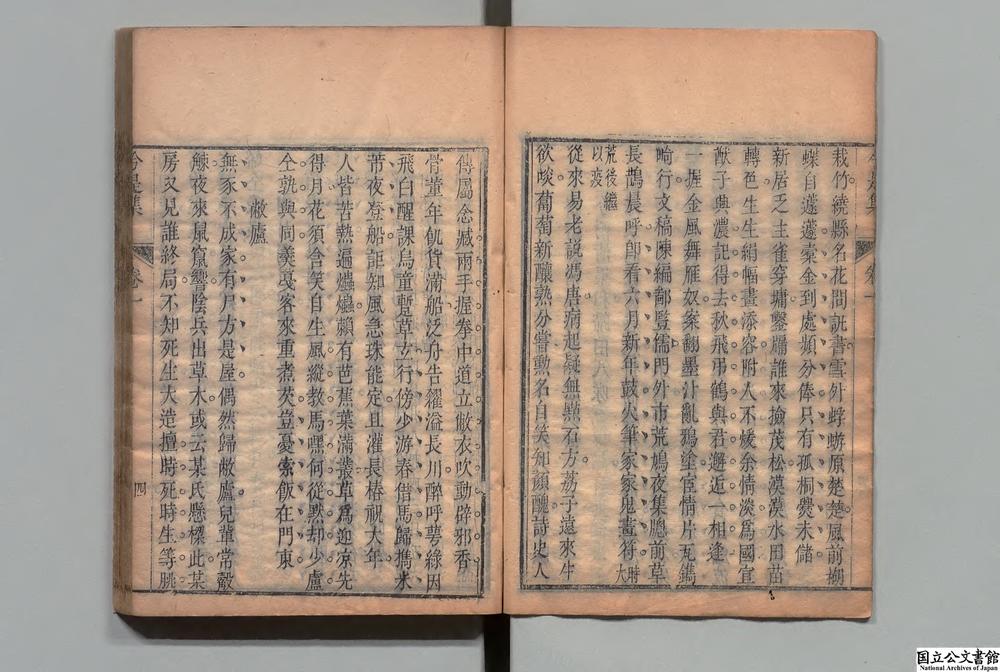 栽竹繞縣名花間說書雪外蜉蝣原楚楚風前
蝶自蘧蘧橐金到處頻分俸只有孤桐爨未儲
新居乏主雀穿墉鑿牖誰來撿茂松漠漠水田苗
轉色生生絹幅畫添容附人不煖余情淡為國宣
猷子興濃記得去秋飛弔鶴與君邂逅一相逢
一握金風舞雁奴案翻墨汁亂鴉塗宦情片瓦鐫
行文稿陳編鄙監儒門外市荒鳩夜集牕前草
長鵲晨呼即看六月新年鼓火筆家家鬼畫符 時大
荒後繼以疫
從來易老說馮唐病起疑無點石方荔子遠來牛
欲啖葡萄新釀熟分嘗勳名自笑知顏醜詩史人
傳屬念臧兩手握拳中道立敝衣吹動辟邪香
骨董年飢貨滿船泛舟告糴溢長川醉呼萼綠因
飛白醒課烏童暫草玄行傍少游春借馬歸攜米
芾夜登船詎知風急珠能定且灌長椿祝大年
人皆苦熱過爞爞賴有芭蕉葉滿叢草為迎涼先
得月花須含笑自生風縱教馬嘿何從黙却少盧
仝孰與同羹戞客來重煮茨豈憂索飯在門東
敝廬
無豕不成家有尸方是屋偶然歸敝廬兒輩常觳
觫夜來鼠竄響陰兵出草木或云某氏懸樑此某
房又見誰終局不知死生大造擅時死時生等朓
今是集
卷一
四
国立公文書館
National Archives of Japan